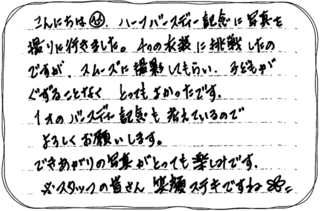 こんにちは 。ハーフバースデー記念に写真を
撮りに行きました。4つの衣装に挑戦したの
ですが、スムーズに撮影してもらい、子どもが
ぐずることなく とってもよかったです。
1才のバースデー記念も考えているので
よろしくお願いします。
できあがりの写真がとっても楽しみです。
スタッフの皆さん 笑顔ステキですね